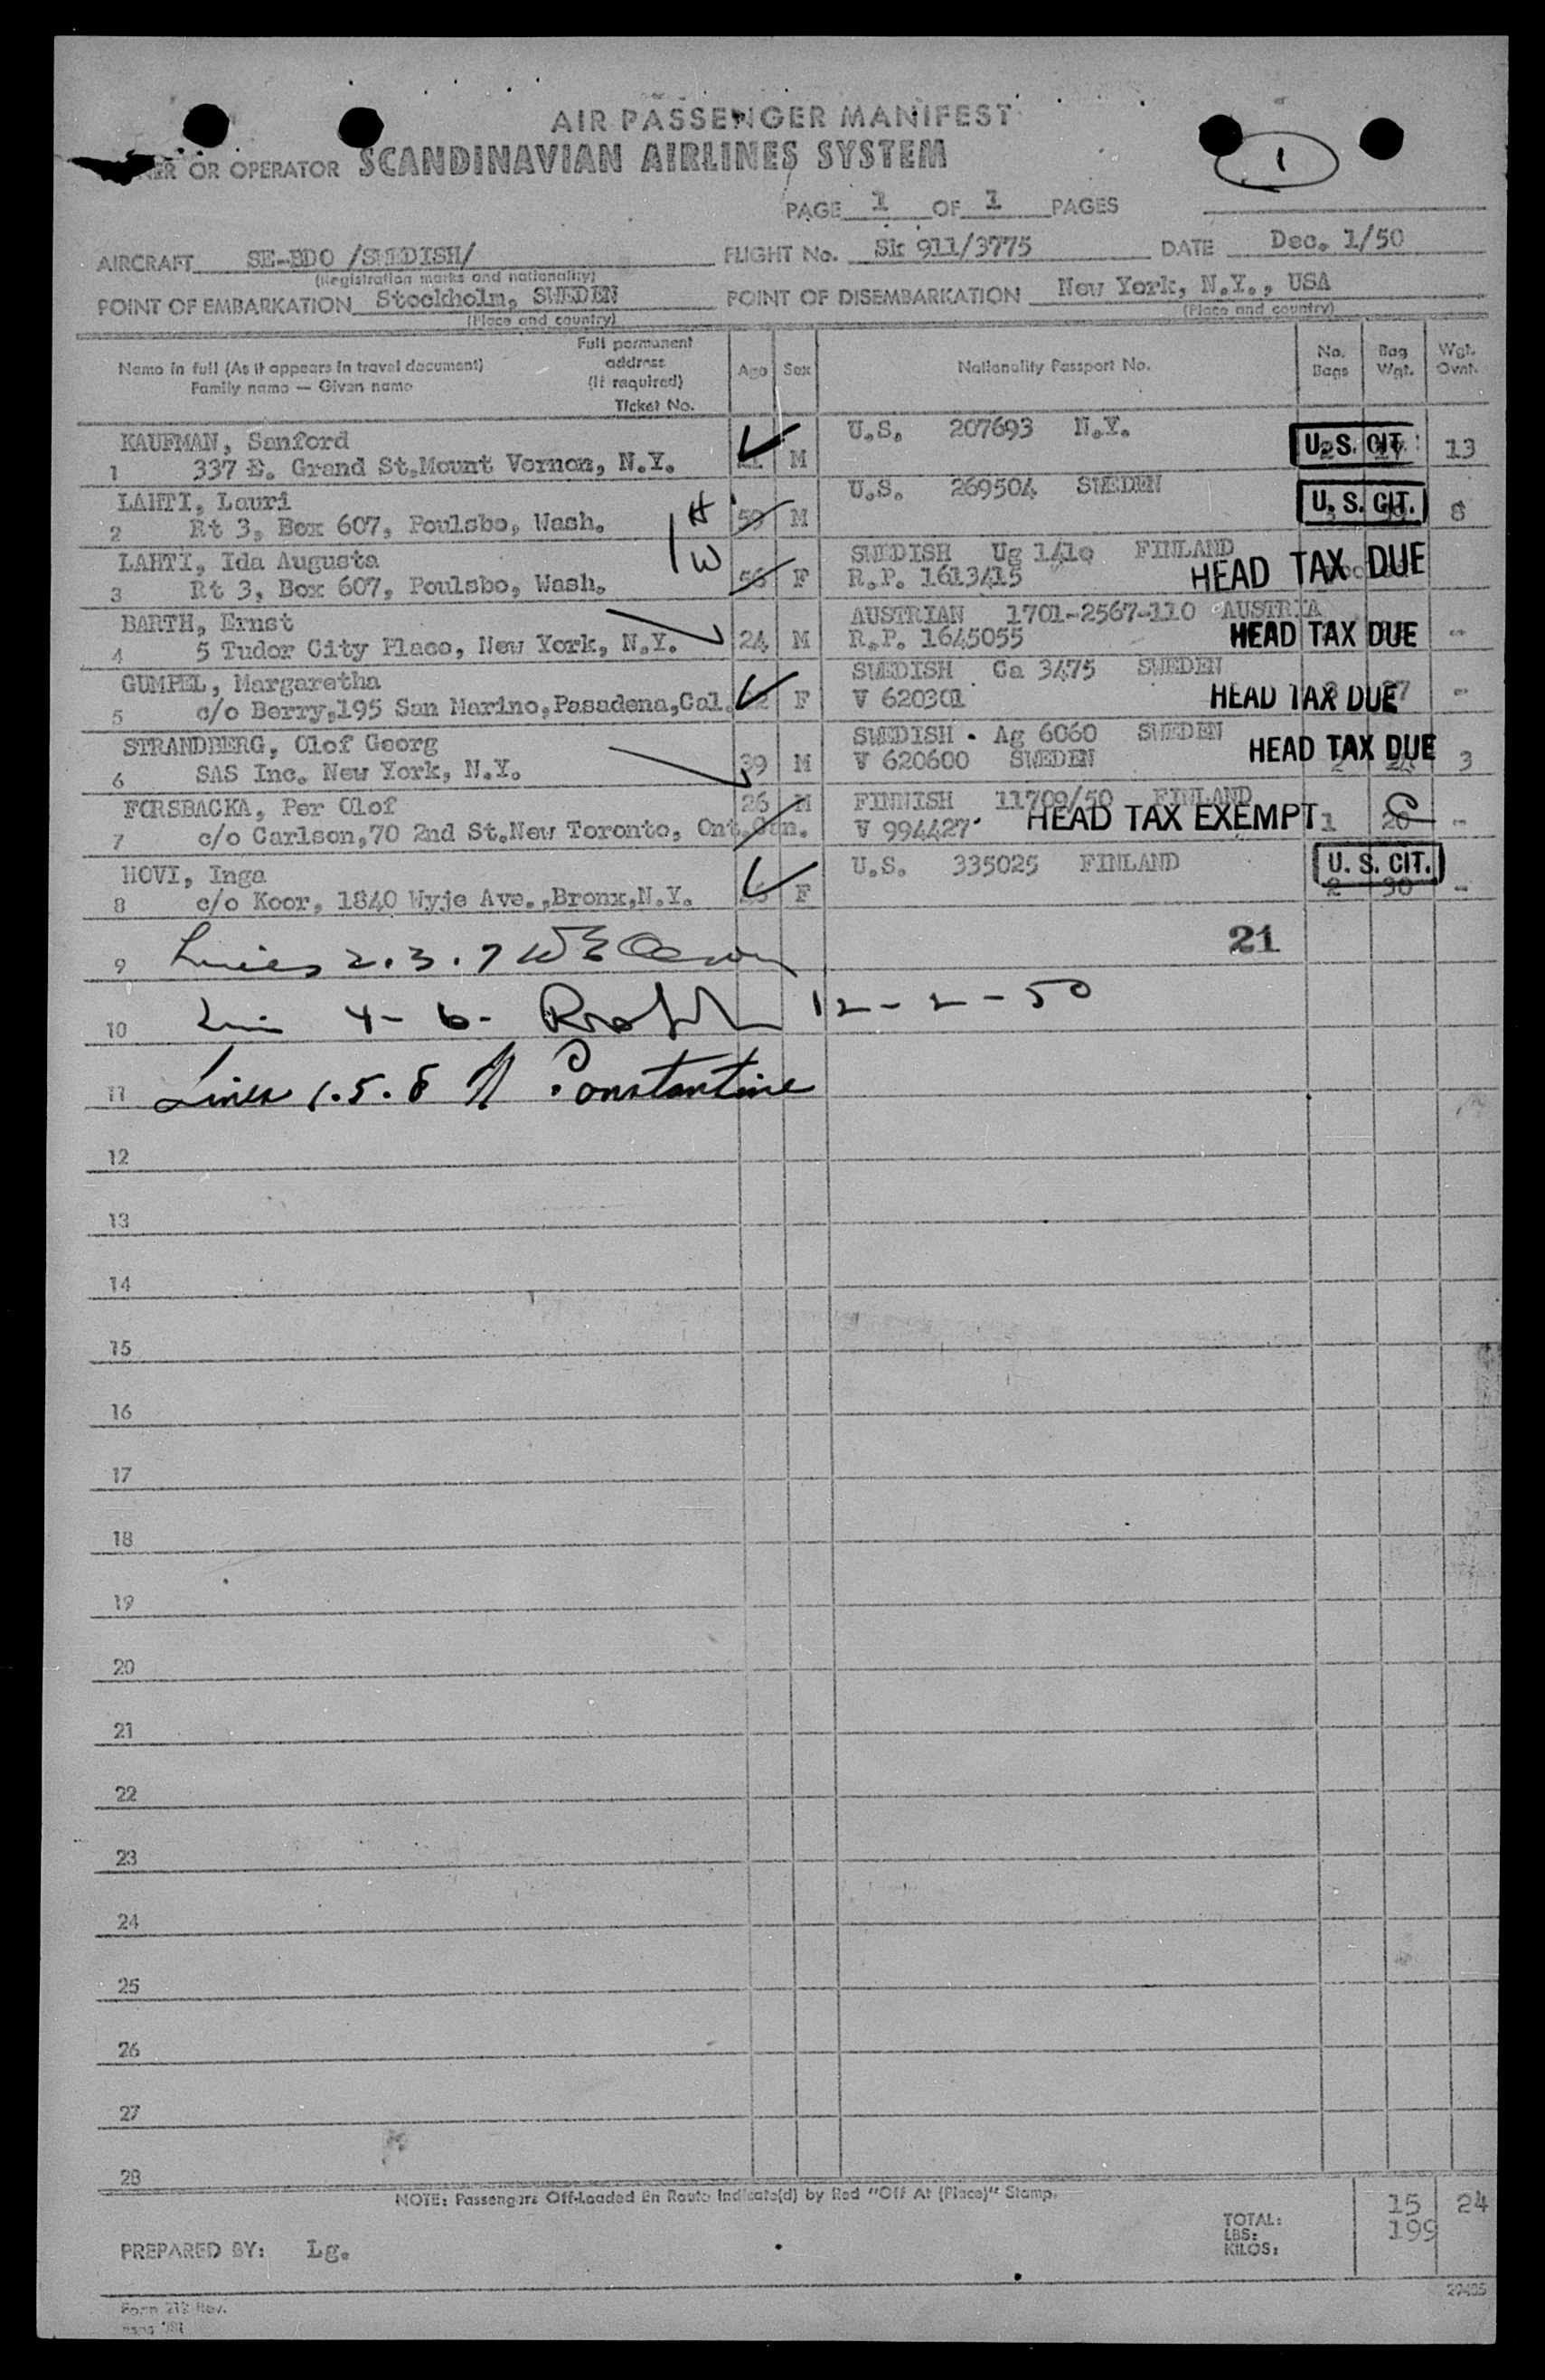 AIR PASSENGER MANIFEST
OR OPERATOR SCANDINAVIAN AIRLINES SYSTEM
1
PAGE 1 OF 1 PAGES
AIRCRAFT SE-BDO /SWEDISH/ FLIGHT No. Sk 911/3775 DATE Dec. 1/50
(Registration marks and nationality)
POINT OF EMBARKATION Stockholm, SWEDEN POINT OF DISEMBARKATION New York, N.Y., USA
(Place and country) (Place and country)
Name in full (As it appears in travel document) Family name — Given name Full permanent address (If required) Ticket No. Age Sex Nationality Passport No. No. Bags Bag Wgt. Wgt. Ovnt.
KAUFMAN, Sanford U.S. 207693 N.Y. U.S. CIT.
1 337 E. Grand St.Mount Vernon, N.Y. M 13
LAHTI, Lauri U.S. 269504 SWEDEN U.S. CIT.
2 Rt 3, Box 607, Poulsbo, Wash. H 59 M 8
LAHTI, Ida Augusta W SWEDISH Ug 1410 FINLAND
3 Rt 3, Box 607, Poulsbo, Wash. 56 F R.P. 1613415 HEAD TAX DUE
BARTH, Ernst AUSTRIAN 1701-2567-110 AUSTRIA
4 5 Tudor City Place, New York, N.Y. 24 M R.P. 1645055 HEAD TAX DUE -
GUMPEL, Margaretha SWEDISH Ga 3475 SWEDEN
5 c/o Berry,195 San Marino,Pasadena,Cal. F V 620301 HEAD TAX DUE -
STRANDBERG, Olof Georg SWEDISH Ag 6060 SWEDEN
6 SAS Inc. New York, N.Y. 39 M V 620600 SWEDEN HEAD TAX DUE 3
FORSBACKA, Per Olof 26 M FINNISH 11709/50 FINLAND
7 c/o Carlson,70 2nd St.New Toronto, Ont.Can. V 994427 HEAD TAX EXEMPT 1 20 -
HOVI, Inga U.S. 335025 FINLAND U. S. CIT.
8 c/o Koor, 1840 Wyje Ave.,Bronx,N.Y. F 2 30 -
9 Lines 2.3.7 21
10 4-6- 12-2-50
11 Lines 1.5.8 Constantine
12
13
14
15
16
17
18
19
20
21
22
23
24
25
26
27
28
NOTE: Passengers Off-Loaded En Route Indicate(d) by Red "Off At (Place)" Stamp.
TOTAL: 15 24
LBS: 199
KILOS:
PREPARED BY: Lg.
Form 212 Rev.